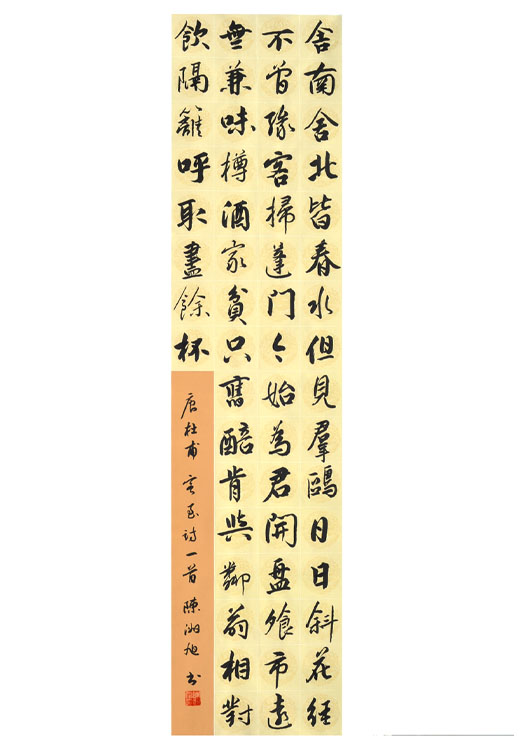 舍南舍北皆春水但見羣鷗日日斜花徑
不曾緣客掃蓬门今始為君開盤飧市遠
無兼味樽酒家貧只舊醅肯與鄰翁相對
飲隔籬呼取盡餘杯
唐杜甫客至诗一首 陳湘旭书